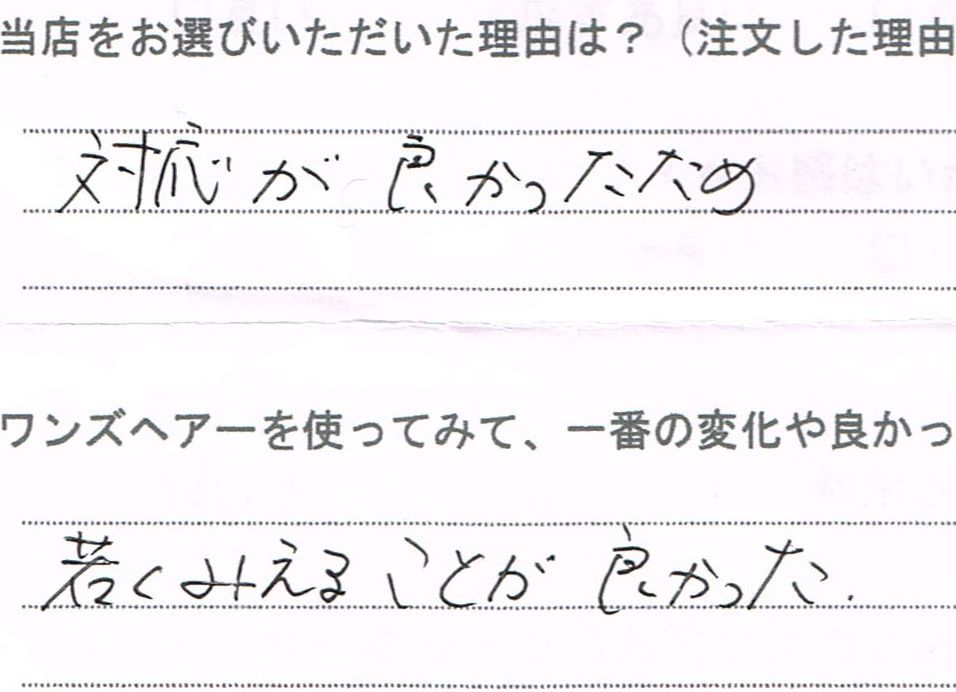 当店をお選びいただいた理由は？（注文した理由
対応が良かったため
ワンズヘアーを使ってみて、一番の変化や良かっ
若くみえることが良かった.